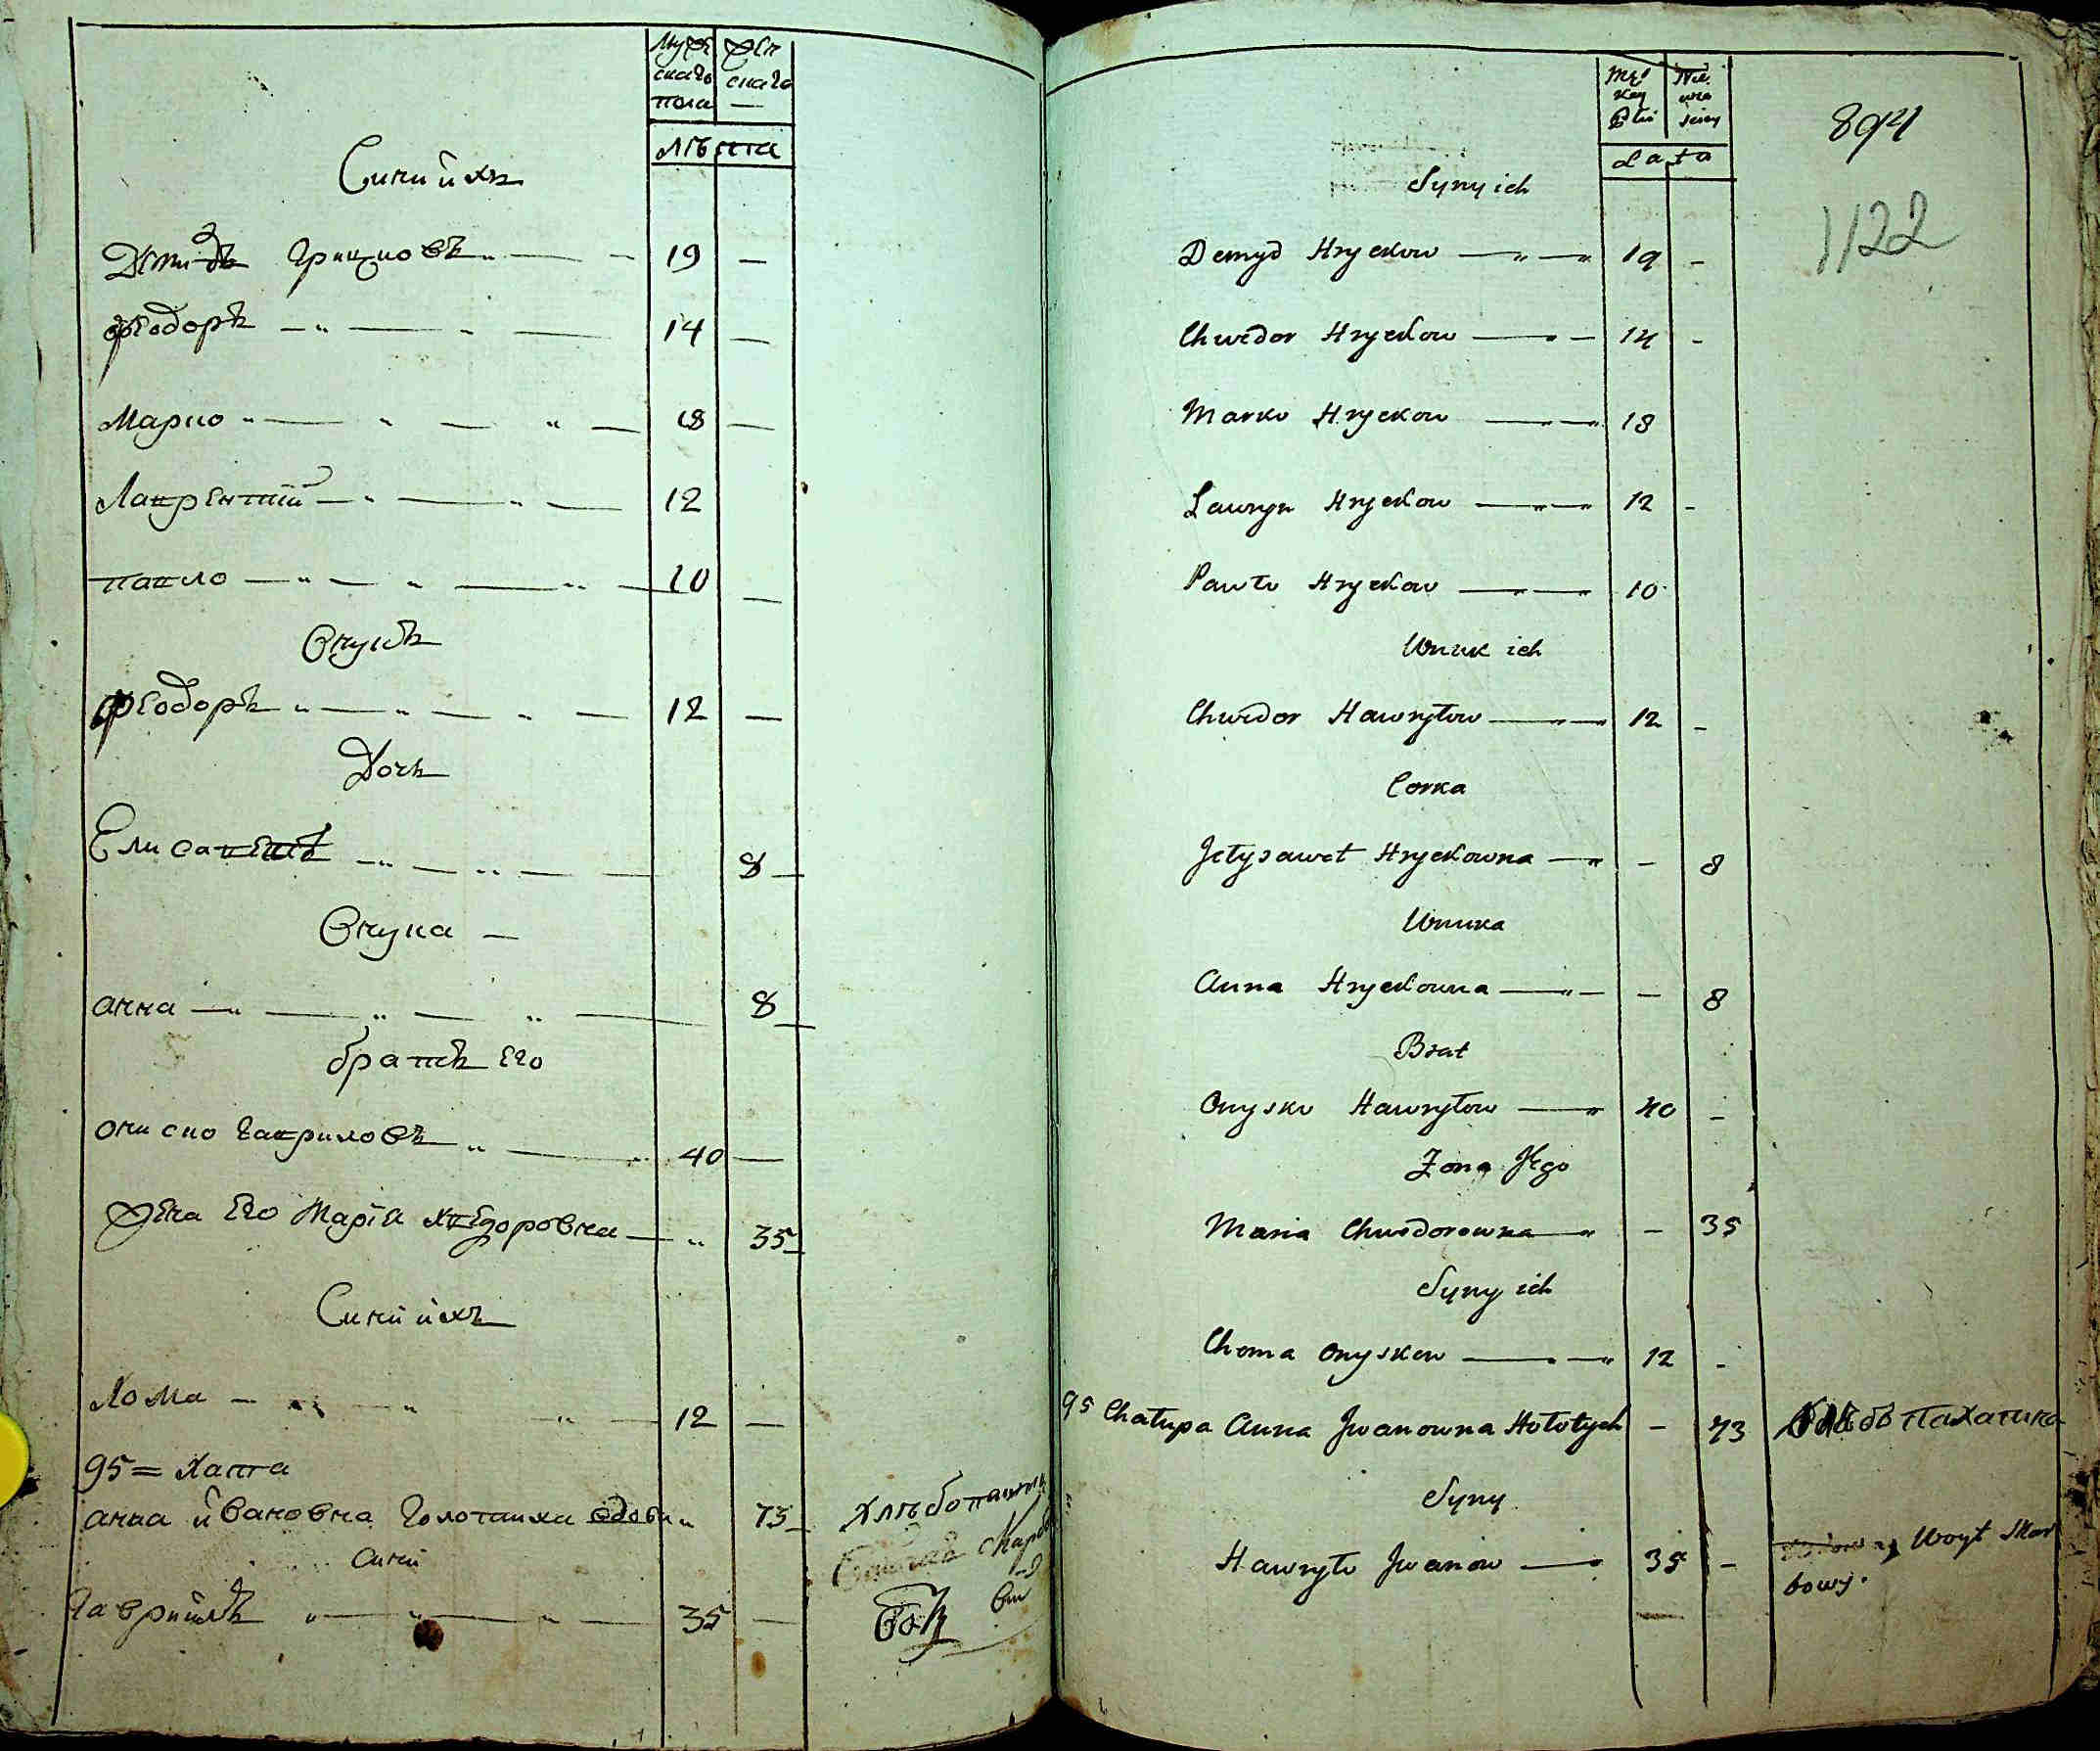 Мужескаго пола Женскаго
Лѣта
Сини ихъ
Демидъ Грицковъ 19 —
Феодоръ 14 —
Марко 18 —
Лаврентий 12
Павло 10 —
Внукъ
Феодоръ 12 —
Дочь
Елисаветъ 8
Внука
Анна 8
братъ его
Ониско Гавриловъ 40 —
Жена его Мария Хведоровна 35
Сини ихъ
Хома 12 —
95 = Хатта
Анна Ивановна Голотаиха вдова 73 Хлѣбопаших
Сини
Гавриилъ 35 —
Męskey Płci Niewieściey
Lata
894
1122
Syny ich
Demyd Hryckow 19 -
Chwedor Hryckow 14 -
Marko Hryckow 18
Ławryn Hryckow 12 -
Pawło Hryckow 10
Wnuk ich
Chwedor Hawryłow 12 -
Corka
Jełysawet Hryckowna - 8
Wnuka
Anna Hryckowna - 8
Brat
Onysko Hawryłow 40 -
Zona Jego
Maria Chwedorowna - 35
Syny ich
Choma Onyskow 12 -
95 Chałupa Anna Jwanowna Hołotych - 73
Syny
Hawryło Jwanow 35 - Woyt Skar
bowy.